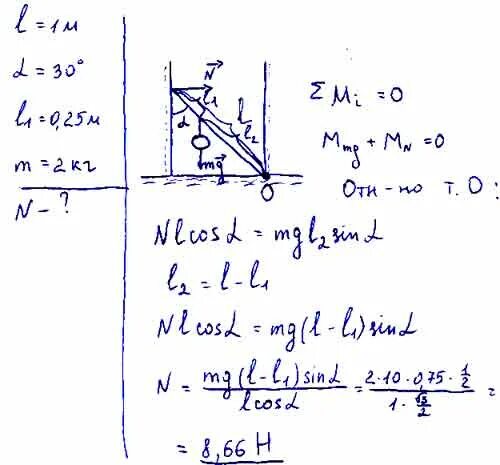 l = 1 м
α = 30°
l₁ = 0,25 м
m = 2 кг
N – ?
N⃗
l₁
l
α
l₂
mg⃗
O
ΣMᵢ = 0
M_mg + M_N = 0
Отн – но т. О :
Nlcosα = mgl₂sinα
l₂ = l – l₁
Nlcosα = mg(l – l₁)sinα
N = mg(l – l₁)sinα / lcosα = 2·10·0,75·1/2 / 1·√3/2 =
= 8,66 Н